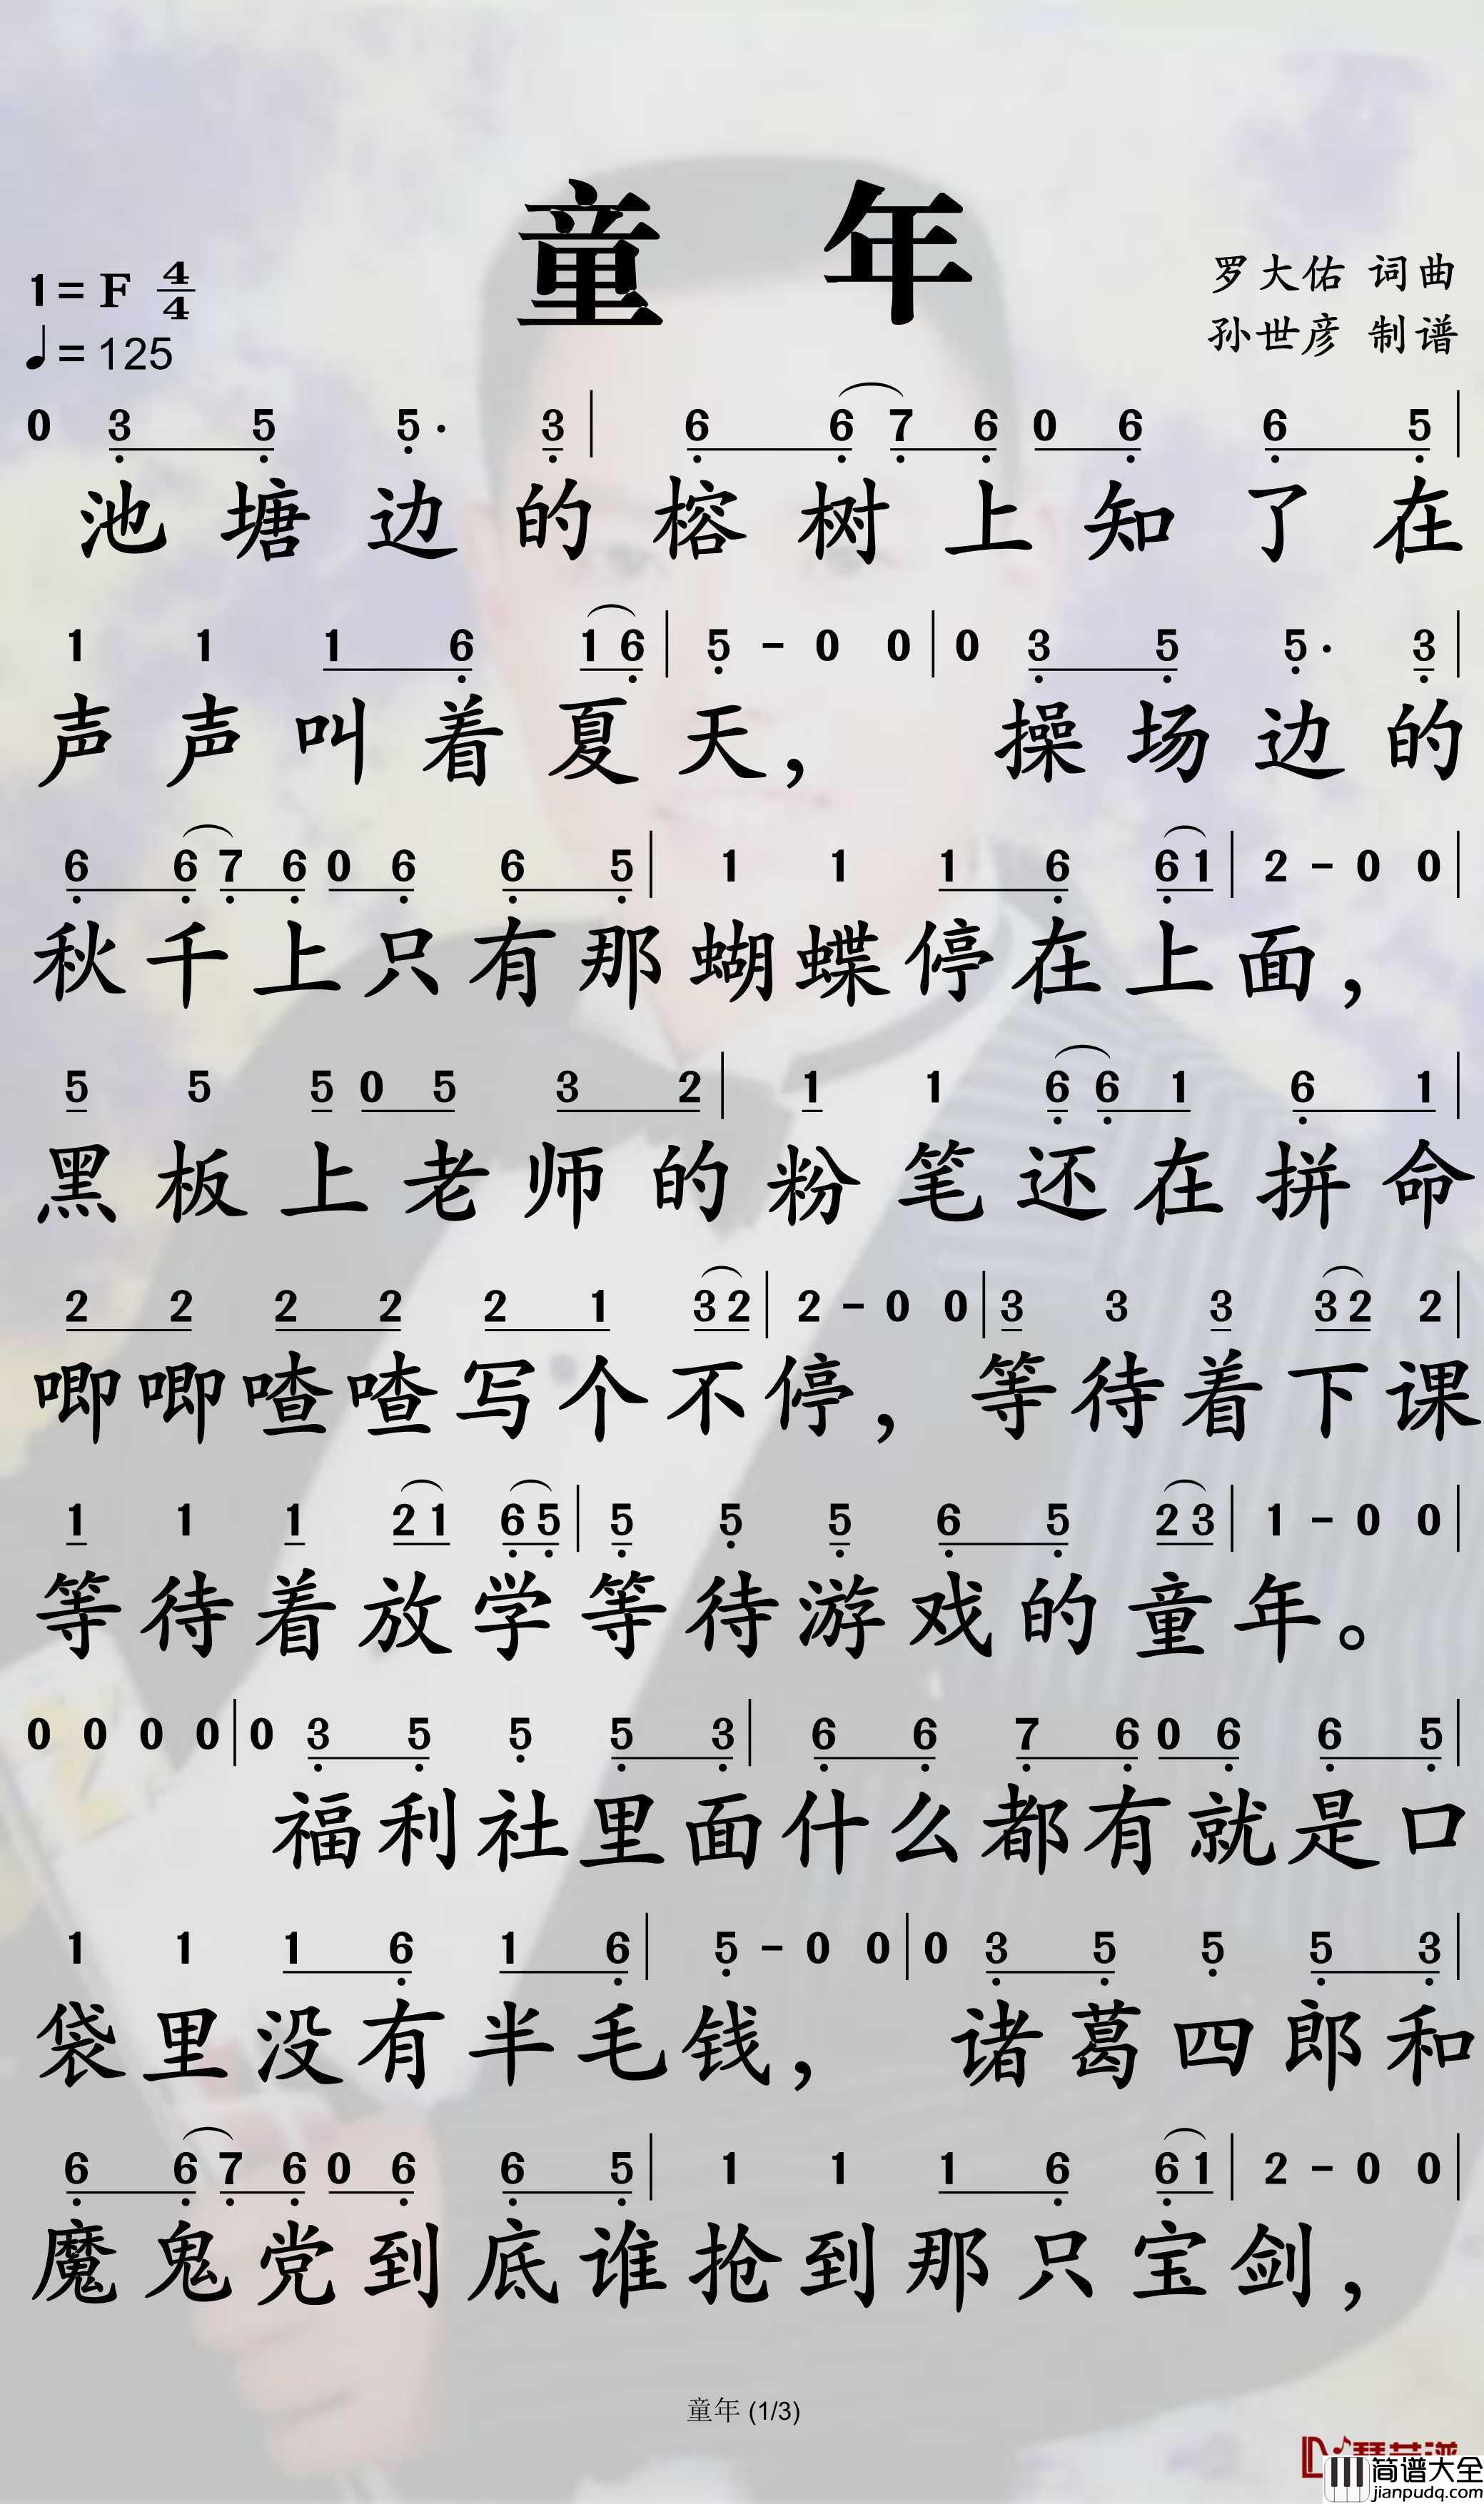 童 年
1=F 4/4
♩=125
罗大佑 词曲
孙世彦 制谱
0 3 5 5· 3 | 6 6 7 6 0 6 6 5 |
池塘边的榕树上知了在
1 1 1 6 1 6 | 5 - 0 0 | 0 3 5 5· 3 |
声声叫着夏天， 操场边的
6 6 7 6 0 6 6 5 | 1 1 1 6 6 1 | 2 - 0 0 |
秋千上只有那蝴蝶停在上面，
5 5 5 0 5 3 2 | 1 1 6 6 1 6 1 |
黑板上老师的粉笔还在拼命
2 2 2 2 2 1 3 2 | 2 - 0 0 | 3 3 3 3 2 2 |
唧唧喳喳写个不停，等待着下课
1 1 1 2 1 6 5 | 5 5 5 6 5 2 3 | 1 - 0 0 |
等待着放学等待游戏的童年。
0 0 0 0 | 0 3 5 5 5 3 | 6 6 7 6 0 6 6 5 |
福利社里面什么都有就是口
1 1 1 6 1 6 | 5 - 0 0 | 0 3 5 5 5 3 |
袋里没有半毛钱， 诸葛四郎和
6 6 7 6 0 6 6 5 | 1 1 1 6 6 1 | 2 - 0 0 |
魔鬼党到底谁抢到那只宝剑，
童年 (1/3)
简谱大全
jianpudq.com